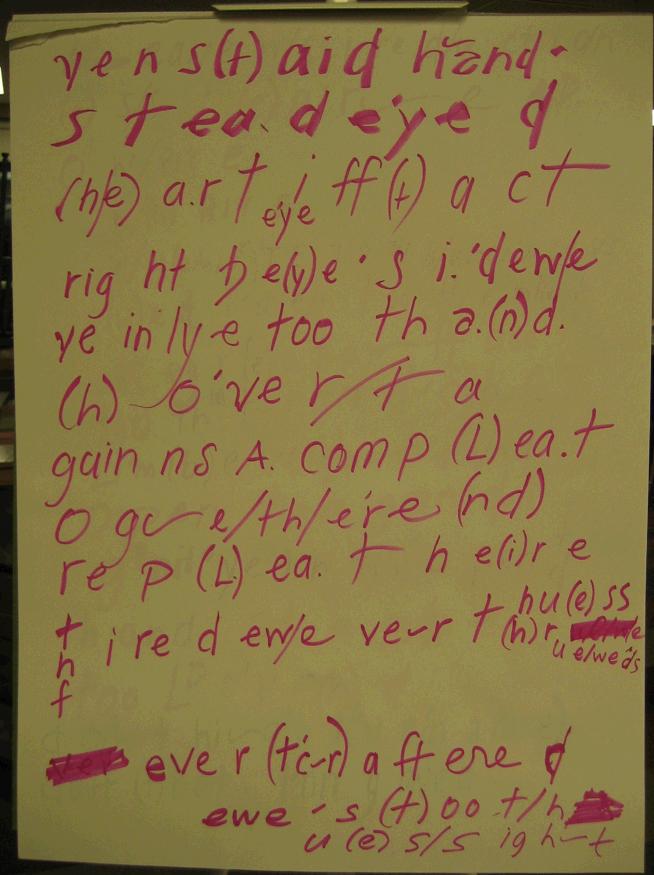 ye n s(t) aid hand-
s t ea. d eye d
(h/e) a.r t, eye i ff(t) a c t
rig ht b e(y)e 's i.'d ew/e
ye in ly e too th a.(n)d.
(h) o've r/t a
gain ns A. comp (L) ea.t
O gu e/th/e're (nd)
re p (L) ea. t h e(i)r e
t h i re d ew/e ve r t (h) r
hu(e) ss
u e/we ds
f
eve r (t'c-r) a ft ere d
ewe 's (t) oo t/h
u (e) s/s ig h t